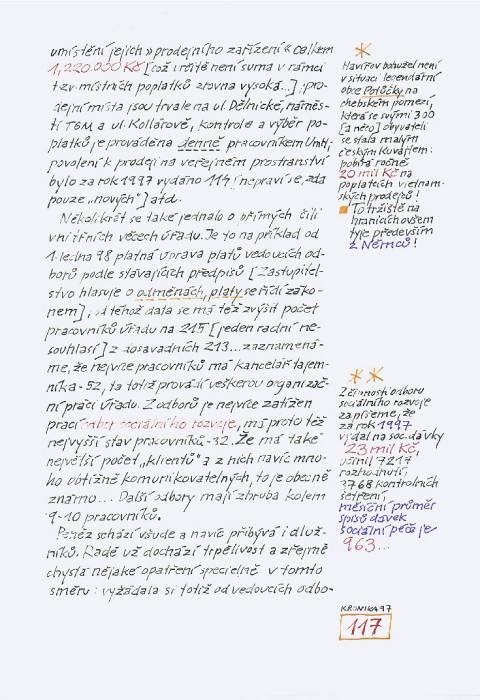 umístění jejich »prodejního zařízení« celkem
1,220.000 Kč [což určitě není suma v rámci
tzv. místních poplatků zrovna vysoká...], pro-
dejní místa jsou trvale na ul. Dělnické, náměs-
tí TGM a ul. Kollárově, kontrole a výběr po-
platků je prováděna denně pracovníkem Úmti,
povolení k prodeji na veřejném prostranství
bylo za rok 1997 vydáno 114 [nepraví se, zda
pouze „nových"] atd.
Několikrát se také jednalo o přímých čili
vnitřních věcech úřadu. Je to na příklad od
1. ledna 98 platná úprava platů vedoucích od-
borů podle stávajících předpisů [Zastupitel-
stvo hlasuje o odměnách, platy se řídí záko-
nem], od téhož data se má též zvýšit počet
pracovníků úřadu na 215 [jeden radní ne-
souhlasí] z dosavadních 213... zaznamená-
me, že nejvíce pracovníků má kancelář tajem-
níka - 52, ta totiž provádí veškerou organizač-
ní práci úřadu. Z odborů je nejvíce zatížen
prací odbor sociálního rozvoje, má proto též
nejvyšší stav pracovníků - 32. Že má také
největší počet „klientů" a z nich navíc mno-
ho obtížně komunikovatelných, to je obecně
známo... Další odbory mají zhruba kolem
9-10 pracovníků.
Peněz schází všude a navíc přibývá i dluž-
níků. Radě už dochází trpělivost a zřejmě
chystá nějaké opatření speciélně v tomto
směru: vyžádala si totiž od vedoucích odbo-
*
Havířov bohužel není
v situaci legendární
obce Potůčky na
chebském pomezí,
která se svými 300
[a něco] obyvateli
se stala malým
českým Kuvajtem:
pobírá ročně
20 mil Kč na
poplatcích vietnam-
ských prodejců!
To tržiště na
hranicích ovšem
tyje především
z Němců!
* *
Z činnosti odboru
sociálního rozvoje
zapíšeme, že
za rok 1997
vydal na soc. dávky
23 mil Kč,
učinil 7217
rozhodnutí,
3768 kontrolních
šetření,
měsíční průměr
spisů dávek
sociální péče je
963...
KRONIKA 97
117